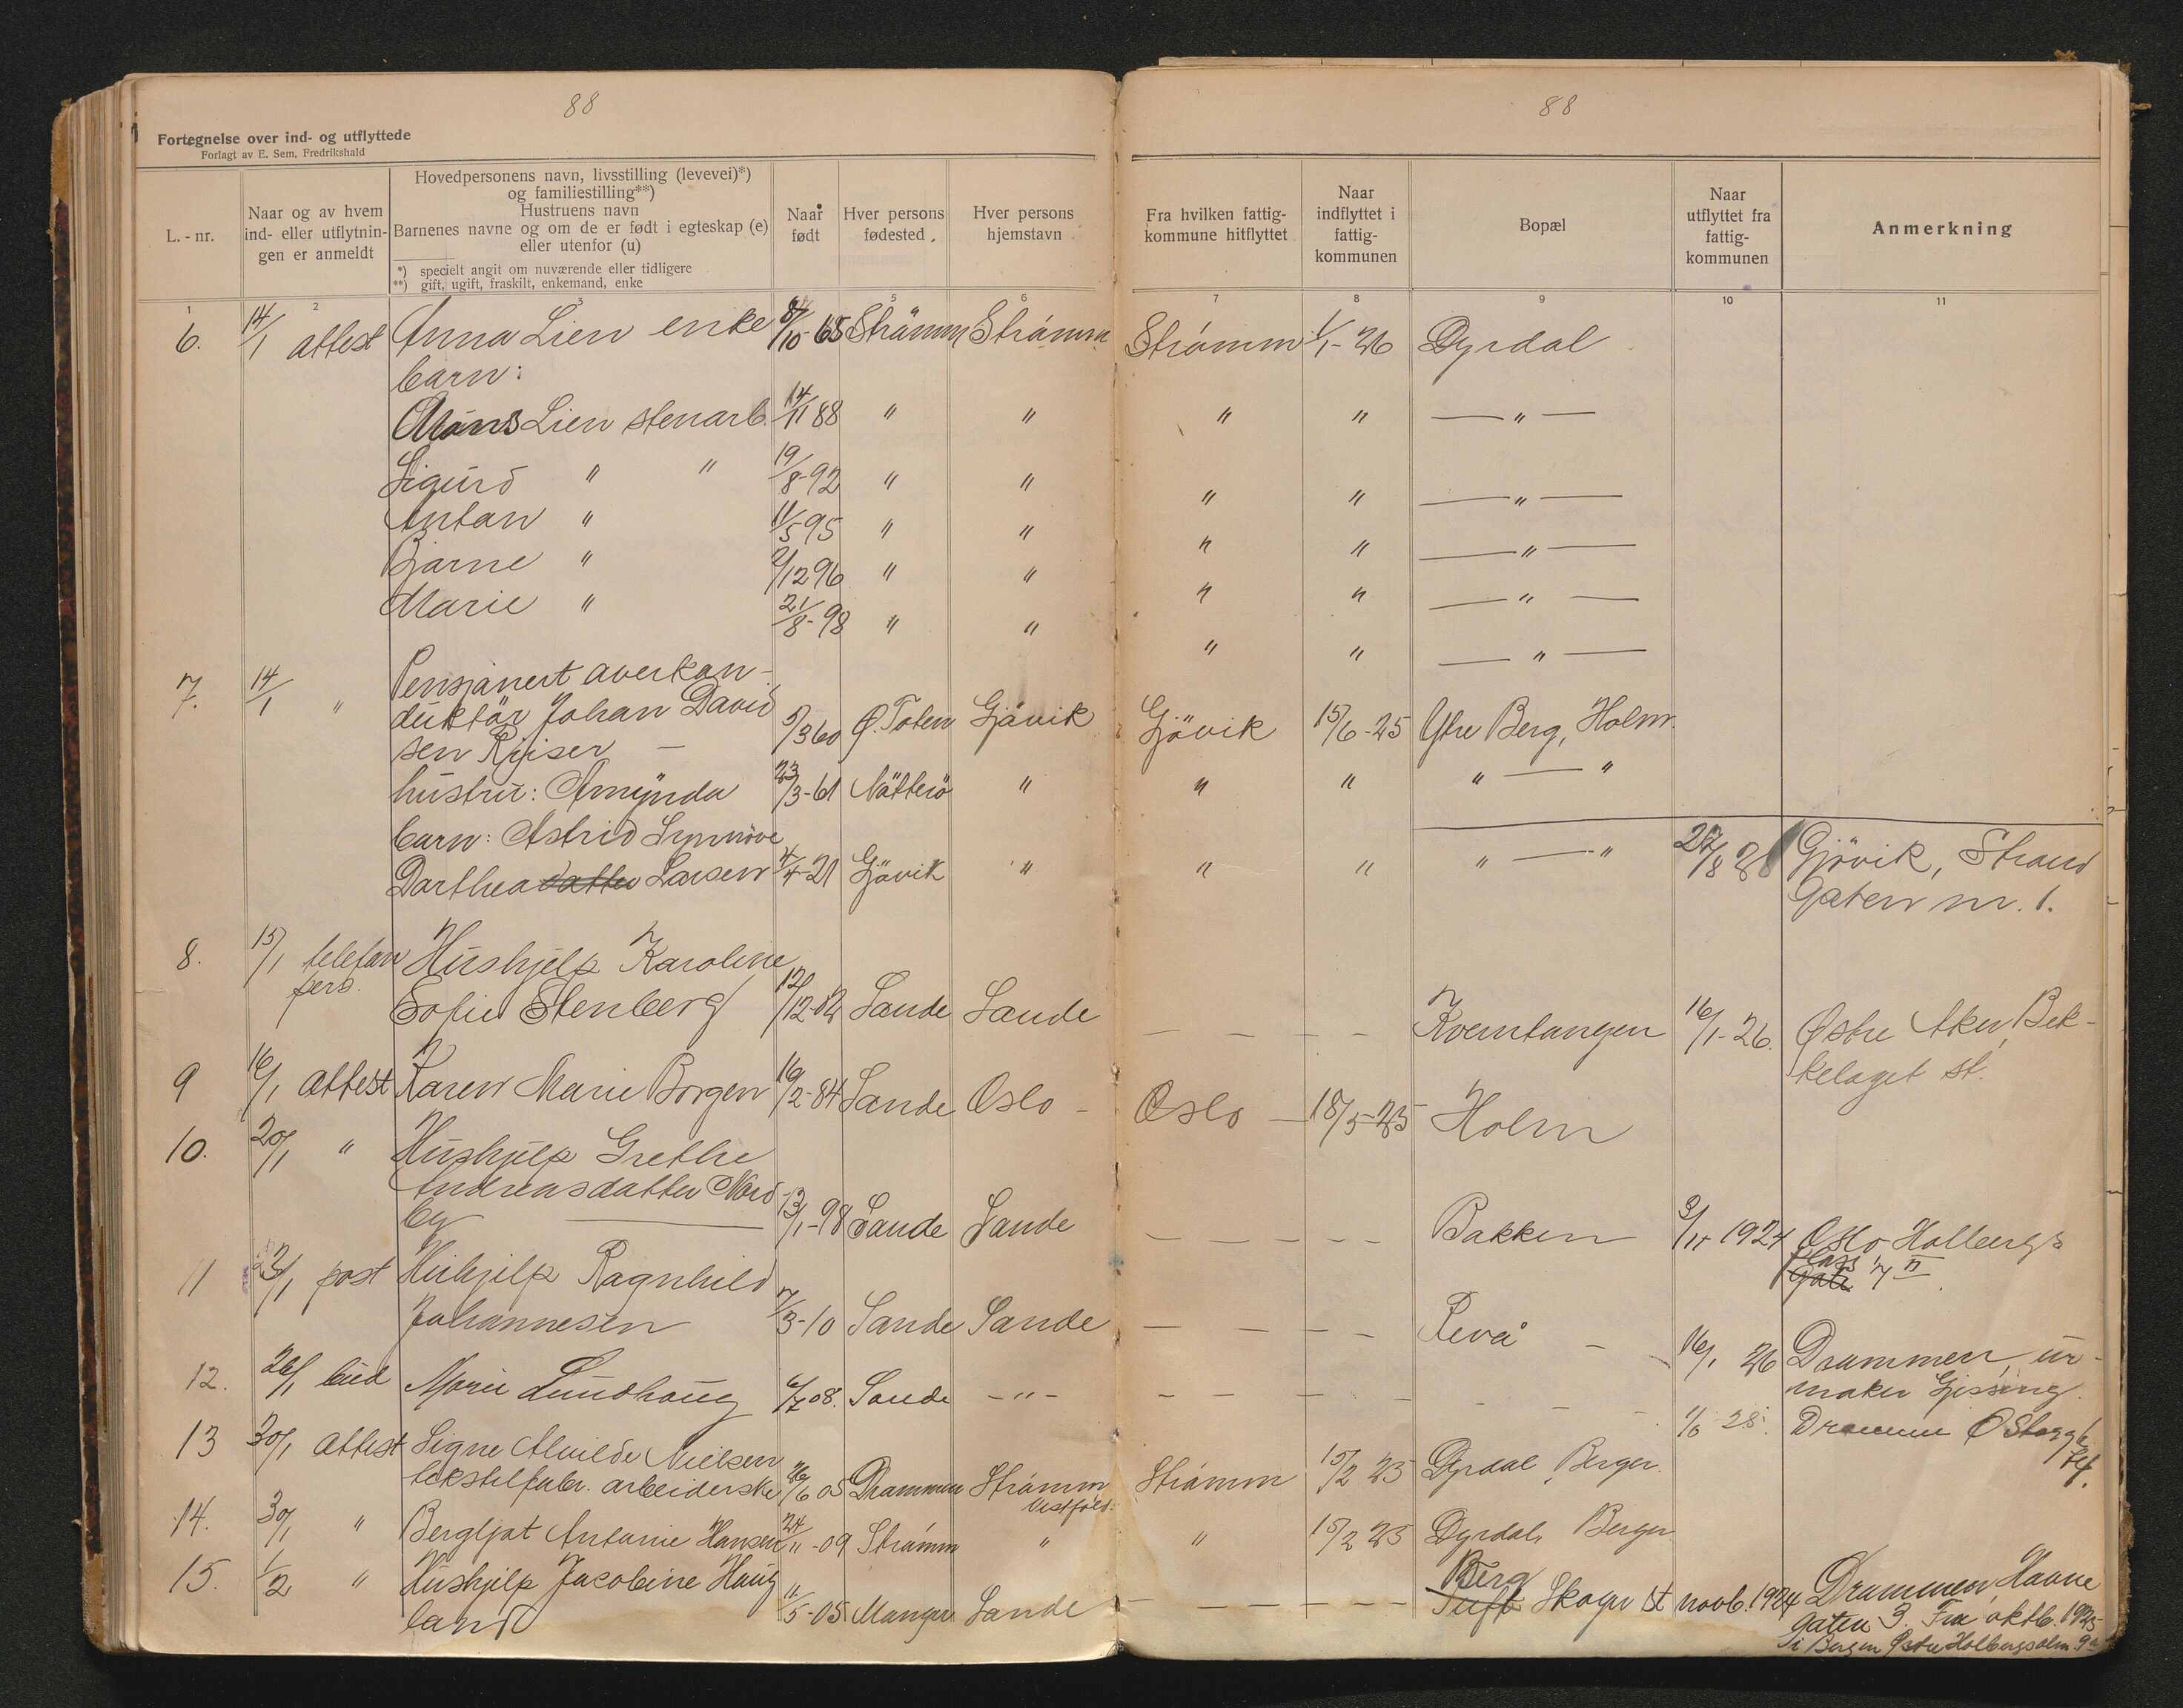 88
88
Fortegnelse over ind- og utflyttede
Forlagt av E. Sem, Fredrikshald
L. - nr.
Naar og av hvem
ind- eller utflytnin-
gen er anmeldt
Hovedpersonens navn, livsstilling (levevei)*)
og familiestilling**)
Hustruens navn
Barnenes navne og om de er født i egteskap (e)
eller utenfor (u)
*) specielt angit om nuværende eller tidligere
**) gift, ugift, fraskilt, enkemand, enke
Naar
født
Hver persons
fødested
Hver persons
hjemstavn
Fra hvilken fattig-
kommune hitflyttet
Naar
indflyttet i
fattig-
kommunen
Bopæl
Naar
utflyttet fra
fattig-
kommunen
Anmerkning
1 2 3 5 6 7 8 9 10 11
6. 14/1 attest Anna Lien enke /10-65 Strömm Strömm Strömm 1/1-26 Dyrdal
barn:
Måns Lien stenarb. 14/11 88 " " " " — " —
Sigurd " " 19/8-92 " " " " — " —
Anton " 11/5 95 " " " " — " —
Bjarne " 2/12 96 " " " " — " —
Marie " 21/8-98 " " " " — " —
7. 14/1 " Pensjonert överkon-
duktör Johan David
sen Riiser — 5/3 60 Ø. Toten Gjövik Gjövik 15/6-25 Ytre Berg, Holm.
hustru: Amynda 23/3-61 Nötterö " " " " — "
barn: Astrid Synnöve
Dorthea datter Larsen 4/4-21 Gjövik " " " " — " 27/8 28 Gjövik, Strand
Gaten nr. 1.
8. 15/1 telefon Hushjelp Karoline
pers. Sofie Stenberg 12/12-04 Sande Sande — — — — Kverntangen 16/1-26. Østre Aker, Bek-
kelaget st.
9 16/1 attest Karen Marie Borgen 16/2-84 Sande Oslo - Oslo — 18/5-25 Holm
10. 20/1 " Hushjelp Grethe
Andreasdatter Nord
by — 13/1-98 Sande Sande — — — — — Bakken 3/11 1924 Oslo Holbergs
plass
gate 7 II
11 23/1 post Hushjelp Ragnhild
Johannesen 7/3-10 Sande Sande — — — — Revå - 16/1 26 Drammen, ur-
maker Gjessing.
12. 26/1 bud Marie Lundhaug 6/7 08. Sande - " - — — — — — — — 1/6 28. Drammen Ø Storgt.
13 30/1 attest Signe Alvilde Nielsen
tekstilfabr. arbeiderske 26/6 05 Drammen Strömm Strömm 15/2 25 Dyrdal, Berger.
Vestfold.
14. 30/1 " Bergljot Antonie Hansen 24/11-09 Strömm " " 15/2 25 Dyrdal, Berger
15. 1/2 " Hushjelp Jacobine Haug
land 11/5-05 Manger Sande — — — — — Berg
Tuft Skoger st novb. 1924 Drammen, Havne
gaten 3. Fra oktb. 1925
i Bergen Østre Holbergsalm. 9a